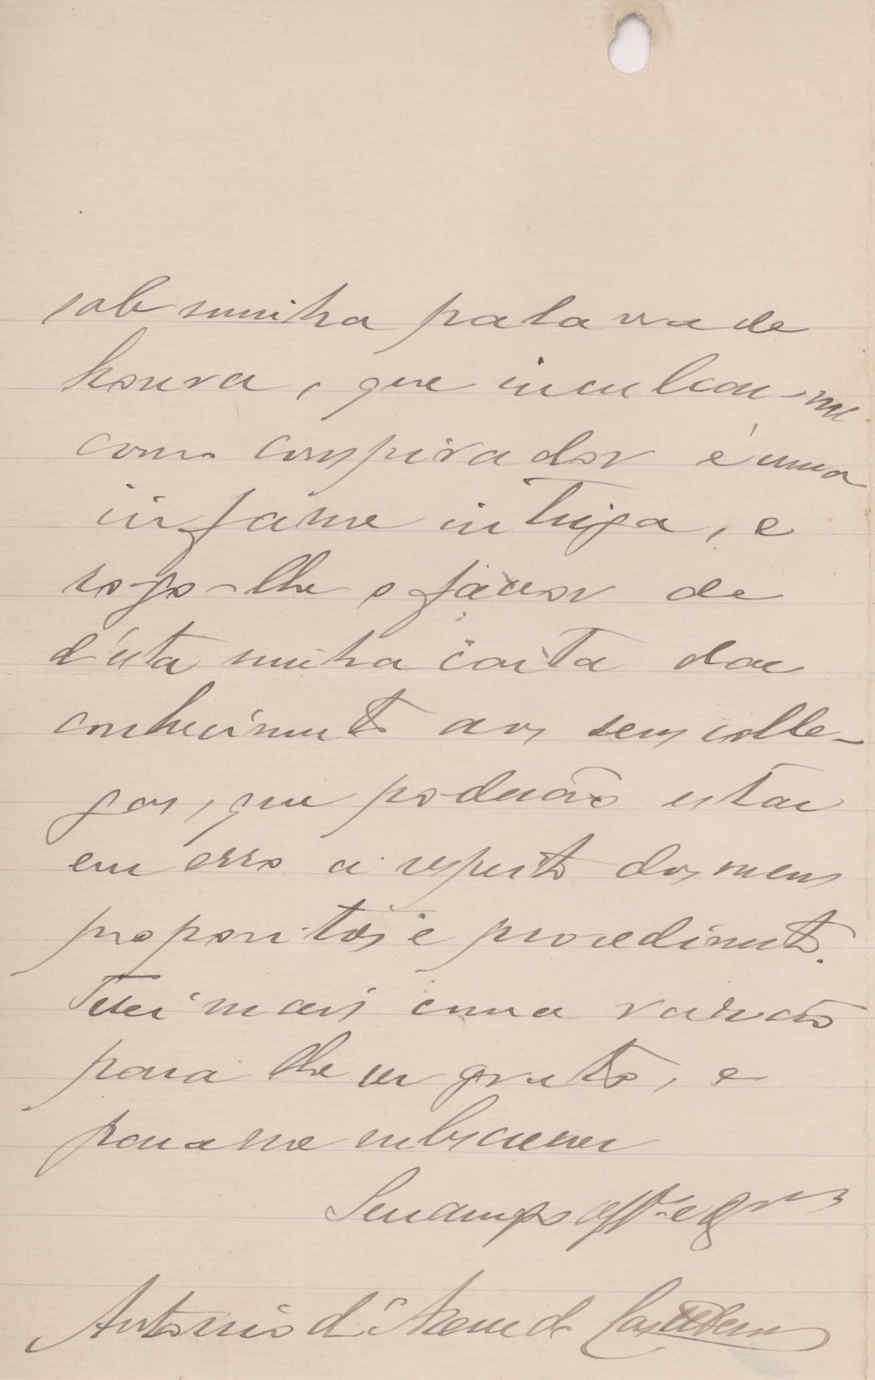 sob minha palavra de
honra, que inculcar-me
como conspirador é uma
infame intriga, e
rogo-lhe o favor de
d'esta minha carta dar
conhecimento aos seus colle-
gas, que poderão estar
em erro a respeito dos meus
propositos e procedimento.
Terei mais uma razão
para lhe ser grato, e
para me subscrever
Seu amigo aff.º e
Antonio d'Azevedo Castello